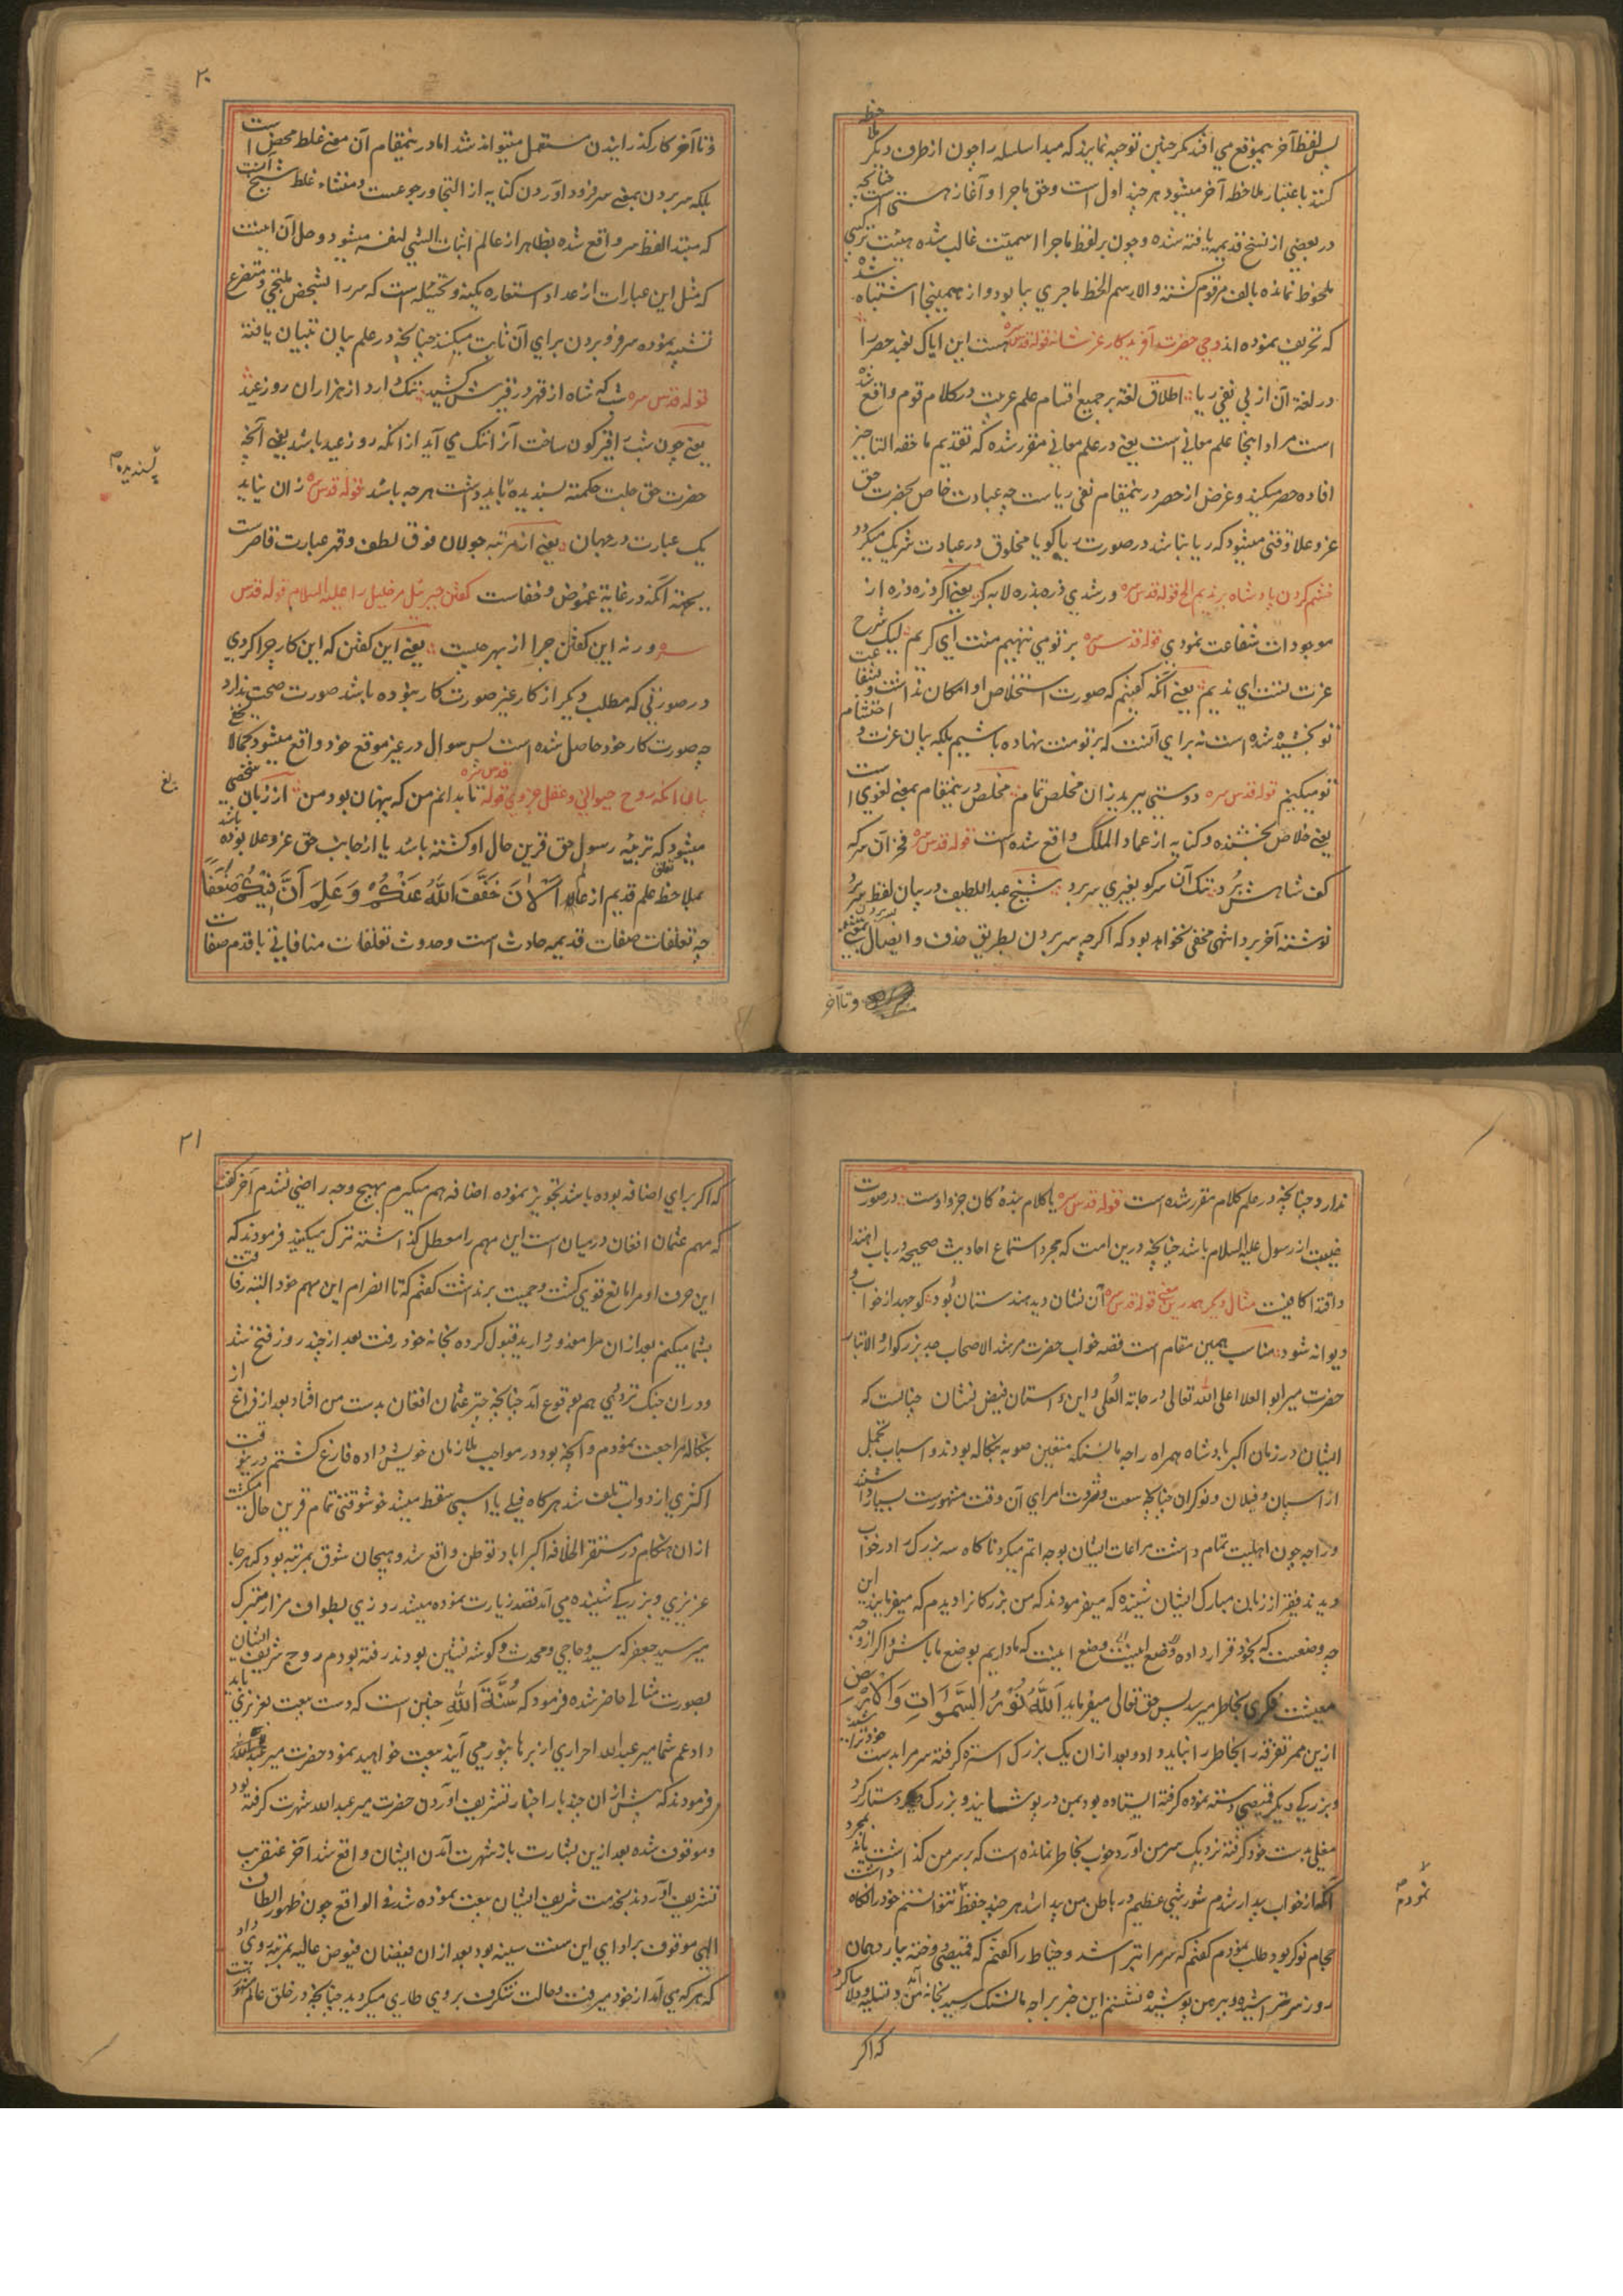 پس لفظ آخر بیموقع می افتد مگر چنین توجیه نمایند که مبدا سلسله را چون از طرف دیگر ملاحظه
کنند باعتبار ملاحظه آخر میشود هر چند اول است وحق ماجرا و آغاز هستی است چنانچه
در بعضی از نسخ قدیمه یافته شده وچون بر لفظ ماجرا اسمیت غالب شده هیئت ترکیبی
ملحوظ نمانده بالف مرقوم گشته والا رسم الخط ماجری بیا بود واز همینجا اشتباه شده
که تحریف نموده اند وحی حضرت آفریدکار عز شانه قوله قدس سره هست این ایاک نعبد حصر را
در لغة آن از پی نفی ریا اطلاق لغة بر جمیع اقسام علم عربیت در کلام قوم واقع شده
است مراد اینجا علم معانی است یعنی در علم معانی مقرر شده که تقدیم ما حقه التاخیر
افاده حصر میکند وغرض از حصر درینمقام نفی ریاست چه عبادت خاص بحضرت حق
عز وعلا وقتی میشود که ریا نباشد در صورت ریا گویا مخلوق در عبادت شریک میگردد
خشم کردن پادشاه بر ندیم الخ قوله قدس سره ور شدی ذره بذره لابه گر یعنی اگر ذره ذره از
موجودات شفاعت نمودی قوله قدس سره بر تو می ننهیم منت ای کریم لیک شرح
عزت تست ای ندیم یعنی آنکه گفتیم که صورت استخلاص او امکان نداشت وبشفاعت
تو بخشیده شده است نه برای آنست که بر تو منت نهاده باشیم بلکه بیان عزت و احتشام
تو میکنیم قوله قدس سره دوستی ببرید زان مخلص تمام مخلص درینمقام بمعنی لغوی است
یعنی خلاص بخشنده وکنایه از عماد الملک واقع شده است قوله قدس سره فخر آن سر که
کف شاهش برد ننک آن سر کو بغیری سر برد شیخ عبد اللطیف در بیان لفظ سر برد
نوشته آخر برد انتهی مخفی نخواهد بود که اگرچه سر بردن بطریق حذف وایصال بمعنی بسر بردن
وتا آخر
۲۰
وتا آخر کار گذرانیدن مستعمل میتواند شد اما درینمقام آن معنی غلط محض است
بلکه سر بردن بمعنی سر فرود آوردن کنایه از التجا ورجوعست ومنشاء غلط شیخ آنست
که مبتدا لفظ سر واقع شده بظاهر از عالم اثبات الشی لنفسه میشود وحل آن اینست
که مثل این عبارات از عداد استعاره مکنیه وتخییلیه است که سر را بشخص ملتجی ومتضرع
تشبیه نموده سر فرو بردن برای آن ثابت میکنند چنانچه در علم بیان تبیان یافته
قوله قدس سره شب که شاه از قهر در قیرش کشید ننک دارد از هزاران روز عید
یعنی چون شب را قیر گون ساخت آنرا ننک می آید از انکه روز عید باشد یعنی آنچه
حضرت حق جلت حکمته پسندیده باید داشت هر چه باشد قوله قدس سره زان نیاید
پسندیده
یک عبارت در جهان یعنی از مرتبه جولان فوق لطف وقهر عبارت قاصرست
بجهته آنکه در غایة غموض وخفاست گفتن جبرئیل مر خلیل را علیه السلام قوله قدس
سره ور نه این گفتن چرا از بهر چیست یعنی این گفتن که این کار چرا کردی
در صورتی که مطلب دیگر از کار غیر صورت کار نبوده باشد صورت صحت ندارد
چه صورت کار خود حاصل شده است پس سوال در غیر موقع خود واقع میشود کمالا یخفی
بیان آنکه روح حیوانی وعقل جزوی قوله قدس سره تا بدانم من که پنهان بود من از زبان شخصی
میشود که تربیة رسول حق قرین حال او گشته باشد یا از جانب حق عز وعلا بوده باشد
بملاحظه علم قدیم از عالم الآن خفف الله عنکم وعلم ان فیکم ضعفا
چه تعلقات صفات قدیمه حادث است وحدوث تعلقات منافاتی با قدم صفات
ندارد چنانچه در علم کلام مقرر شده است قوله قدس سره یا کلام بندۀ کان جزو اوست در صورت
غیبت از رسول علیه السلام باشد چنانچه درین امت که مجرد استماع احادیث صحیحه در باب اهتدا
واقتدا کافیست مثال دیگر همدرین معنی قوله قدس سره آن نشان دید هندستان بود کو جهد از خواب و
دیوانه شود مناسب همین مقام است قصه خواب حضرت مرشد الاصحاب جد بزرگوار والاتبار
حضرت میر ابو العلا اعلی الله تعالی درجاته العلی واین آستان فیض نشان چنانست که
ایشان در زمان اکبر پادشاه همراه راجه مانسنکه متعین صوبه بنکاله بودند واسباب تجمل
از اسپان وفیلان ونوکران چنانچه سعت وثروت امرای آن وقت مشهورست بسیار داشتند
وراجه چون اهلیت تمام داشت مراعات ایشان بوجه اتم میکرد ناگاه سه بزرگ را در خواب
دیدند فقیر از زبان مبارک ایشان شنیده که میفرمودند که من بزرگانرا دیدم که میفرمایند این
چه وضعست که بخود قرار داده وضع اینست وضع اینست که ما داریم بوضع ما باش واگر از وجه
معیشت فکری بخاطر میرسد پس حق تعالی میفرماید الله نور السموات والارض
ازین ممر تفرقه را بخاطر راه نباید داد وبعد ازان یک بزرگ استره گرفته سر مرا بدست خود تراشید
وبزرگی دیگر قمیصی دسته نموده گرفته ایستاده بود بمن در پوشانید وبزرگ دیگر دستار گرد
مغلی بدست خود گرفته نزدیک سر من آورد خوب بخاطر نمانده است که بر سر من گذاشت یا نه بمجرد
آنکه از خواب بیدار شدم شورشی عظیم در باطن من پیدا شد هر چند حفظ نتوانستم خود را نگاه داشت
نمودم
حجام نوکر بود طلب نمودم گفتم که سر مرا بتراشد وخیاط را گفتم که قمیصی دوخته بیار دهمان
روز سر تراشیده ودر بر من پوشیده نشستم این خبر براجه مانسنک رسید بخانه من آمد وتسلیه ودلاسا کرد
که اگر
۲۱
که اگر برای اضافه بوده باشد تجویز نموده اضافه هم میگیرم بهیچ وجه راضی نشدم آخر گفت
که مهم عثمان افغان درمیان است این مهم را معطل گذاشته ترک میکنید فرمودند که
این حرف او مرا مانع قوی گشت وحمیت برنداشت گفتم که تا انصرام این مهم خود البته رفاقت
بشما میکنم بعد ازان مرا معذور دارید قبول کرده بخانه خود رفت بعد از چند روز فتح شد
ودران جنک ترددی هم بوقوع آمد چنانچه چتر عثمان افغان بدست من افتاد بعد از فراغ از
بنکاله مراجعت نمودم وآنچه بود در مواجب ملازمان خویش داده فارغ گشتم درینوقت
اکثری از دواب تلف شد هرگاه فیلی یا اسپی سقط میشد خوشوقتی تمام قرین حال میگشت
ازان هنگام در مستقر الخلافه اکبراباد توطن واقع شد وهیجان شوق بمرتبه بود که هر جا
عزیزی وبزرگی شنیده می آمد قصد زیارت نموده میشد روزی بطواف مزار متبرک
میر سید جعفر که سید وحاجی ومحدث وگوشه نشین بودند رفته بودم روح شریف ایشان
بصورت مثالی حاضر شده فرمود که سنة الله چنین است که دست بیعت بعزیزی باید
داد عم شما میر عبد الله احراری از برهانپور می آیند بیعت خواهید نمود حضرت میر عبد الله
فرمودند که پیش ازان چند بار اخبار تشریف آوردن حضرت میر عبد الله شهرت گرفته بود
وموقوف شده بعد ازین بشارت باز شهرت آمدن ایشان واقع شد آخر عنقریب
تشریف آوردند بخدمت شریف ایشان بیعت نموده شد فی الواقع چون ظهور الطاف
الهی موقوف بر ادای این سنت سنیه بود بعد ازان فیضان فیوض عالیه بمرتبه روی داد
که هر که می آمد از خود میرفت وحالت شگرف بر وی طاری میگردید چنانچه در خلق عالم